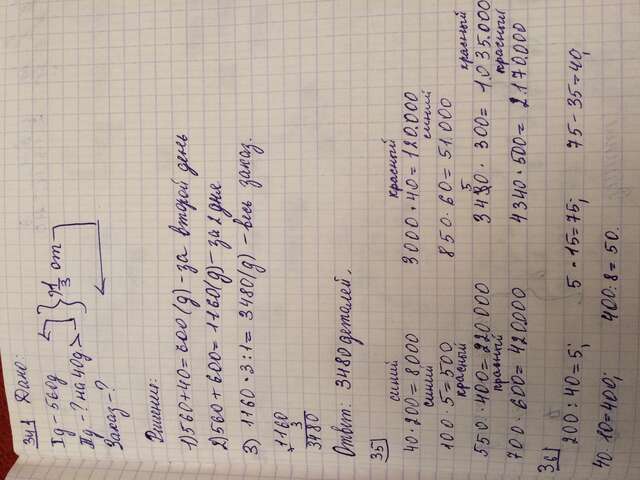 34) Дано:
I д - 560д
II д - ? на 40д > } 1/3 от
Заказ - ?
Решение:
1) 560+40=600(д) - за второй день
2) 560+600=1160(д) - за 2 дня
3) 1160·3:1=3480(д) - весь заказ.
1160
× 3
3480
Ответ: 3480 деталей.
35)
синий красный
40·200=8000 3000·40=120.000
синий синий
100·5=500 850·60=51.000
красный красный
550·400=220.000 3450·300=1.035.000
красный красный
700·600=420.000 4340·500=2.170.000
36)
200:40=5; 5·15=75; 75-35=40;
40·10=400; 400:8=50.